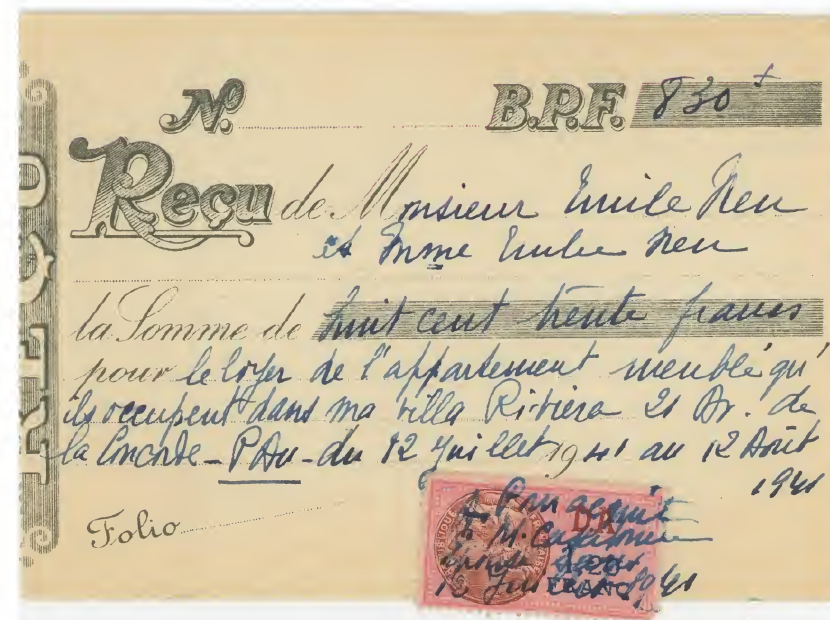 REÇU
No. B.P.F. 830
Reçu de Monsieur Emile Neu
et Mme Emilie Neu
la Somme de huit cent trente francs
pour le loyer de l'appartement meublé qu'
ils occupent dans ma villa Riviera 21 Av. de
la Concorde - PAU - du 12 Juillet 1941 au 12 Août
1941
Folio
Pour acquit
M.
12 Juillet 1941